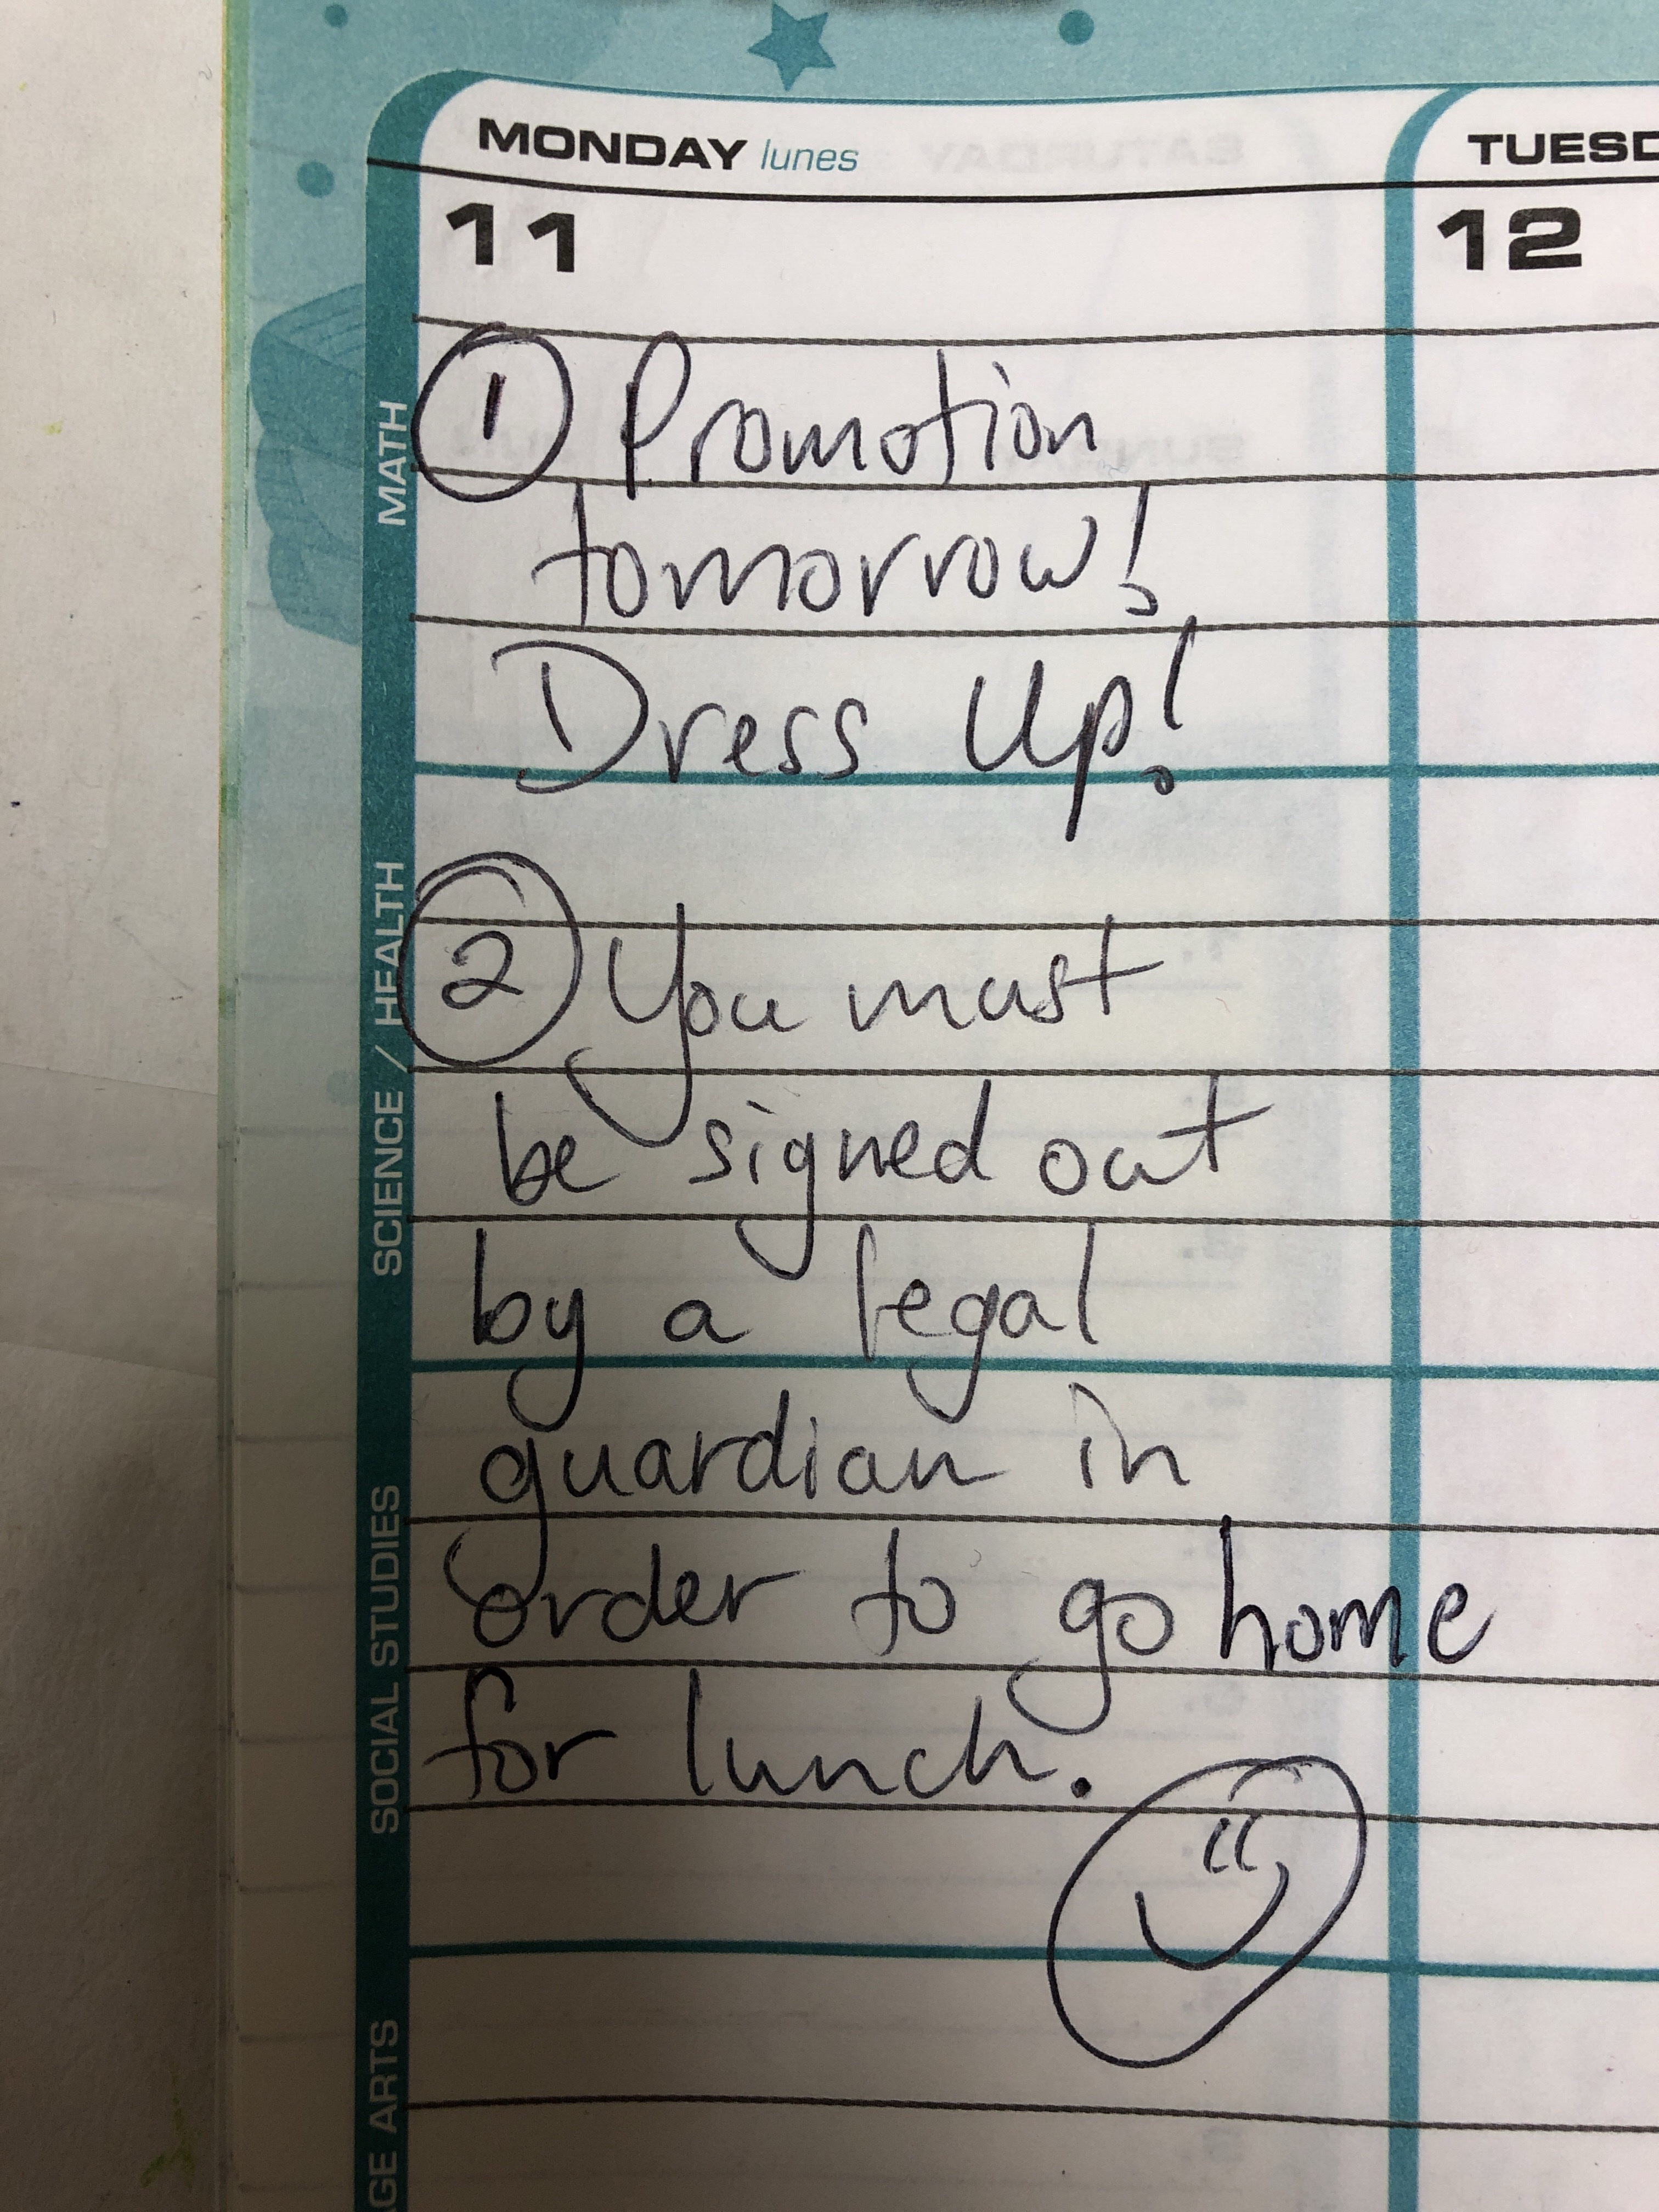 MONDAY lunes
TUESD
11
12
① Promotion
tomorrow!
Dress Up!
② You must
be signed out
by a legal
guardian in
order to go home
for lunch.
MATH
SCIENCE / HEALTH
SOCIAL STUDIES
GE ARTS